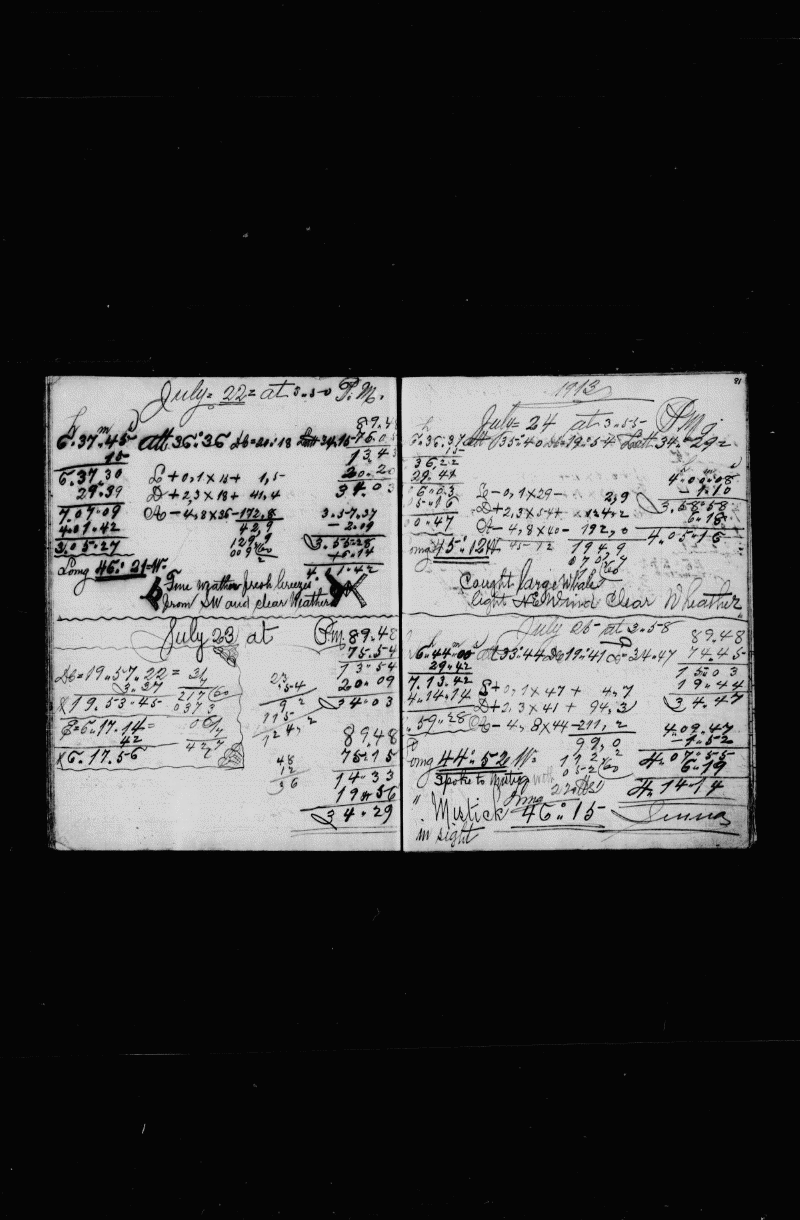 July = 22 = at 3.50 P.M.
89.48
6.37.45 Alt 36.36 Db=20.18 Latt 34.15 76.05
15 13.43
6.37.30 L + 0,1 x 15 + 1,5 20.20
29.39 D + 2,3 x 18 + 41,4 34.03
7.07.09 A - 4,8 x 36 - 172,8 3.57.37
4.01.42 42,9 - 2.09
3.05.27 129,9 3.55.28
009 60 + 6.14
2 4.1.42
Long 46.21 W.
Fine weather fresh breezes
from SW and clear Weather
July 23 at P.M. 89.48
75.54
13.54
Db=19.57.22 = 24 20.09
3.37 217 60 34.03
X 19.53.45 0373
23
5.4
92
115
124,2
E=6.17.14 = 89.48
42 48 75.15
X 6.17.56 12 14.33
36 19.56
34.29
1913 81
July = 24 at 3.55 P.M.
7.36.37 Alt 35.40 Db=19.54 Latt 34.29 =
15
36.22
29.44 4.00.08
6.03 L - 0,1 x 29 - 2,9 - 1.10
5.16 D + 2,3 x 54 + 124,2 3.58.58
0.47 A - 4,8 x 40 - 192,0 6.18
4.05.16
ong 45.12 W 45-12 194,9
070,7 60
Caught large Whale
light NE Wind Clear Wheather
July 25 at 3.58 89.48
6.44.00 Alt 33.44 Db 19.41 L 34.47 74.45
29.42 15.03
7.13.42 L + 0,1 x 47 + 4,7 19.44
4.14.14 D + 2,3 x 41 + 94,3 34.47
.59.28 A - 4,8 x 44 - 211,2 4.09.47
99,0 - 1.52
ong 44.52 W. 112,2 4.07.55
052 60 6.19
Spoke to with 4.14.14
" Mistick Long 46.15
in sight